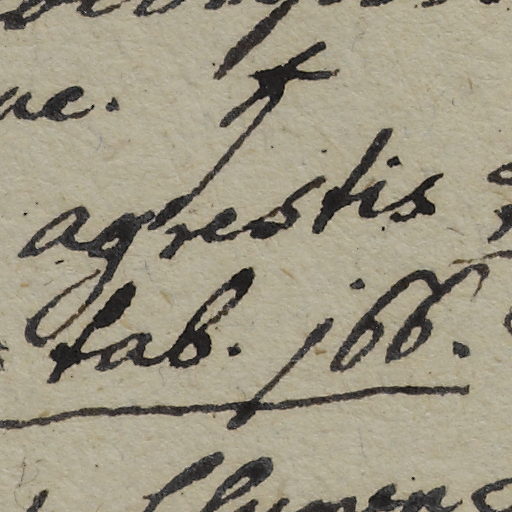 ae.
agrestis
tab. 166.